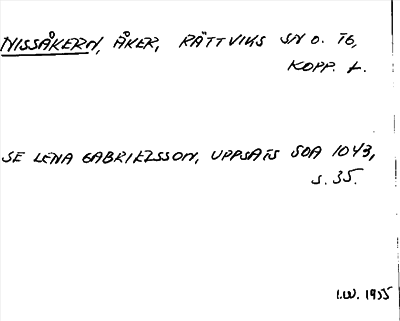 NISSÅKERN, ÅKER, RÄTTVIKS SN O. TG,
KOPP. L.
SE LENA GABRIELSSON, UPPSATS SOA 1043,
S. 35.
I.W. 1955